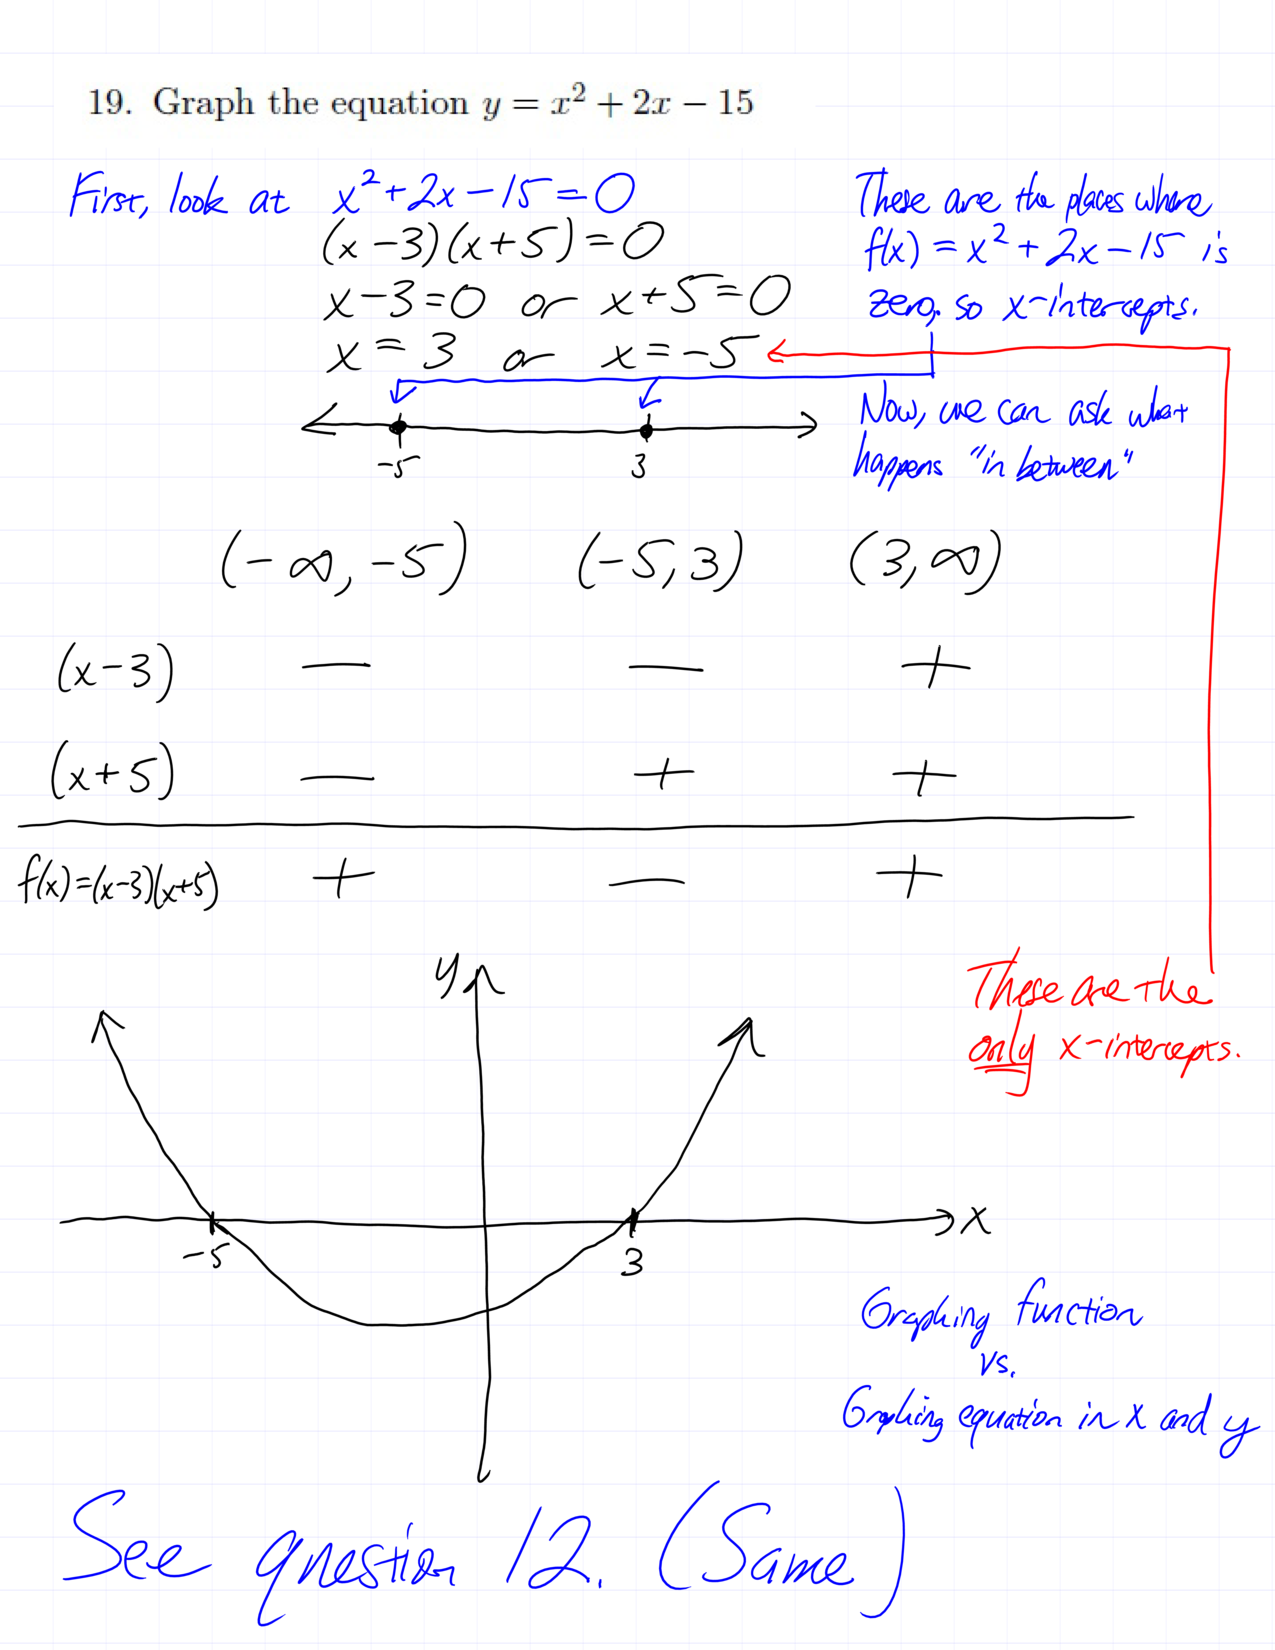 19. Graph the equation y = x² + 2x − 15
First, look at x² + 2x − 15 = 0
(x − 3)(x + 5) = 0
x − 3 = 0 or x + 5 = 0
x = 3 or x = −5
These are the places where
f(x) = x² + 2x − 15 is
zero, so x-intercepts.
−5 3
Now, we can ask what
happens "in between"
(−∞, −5) (−5, 3) (3, ∞)
(x − 3) − − +
(x + 5) − + +
f(x) = (x−3)(x+5) + − +
These are the
only x-intercepts.
y
x
−5 3
Graphing function
vs.
Graphing equation in x and y
See question 12. (Same)